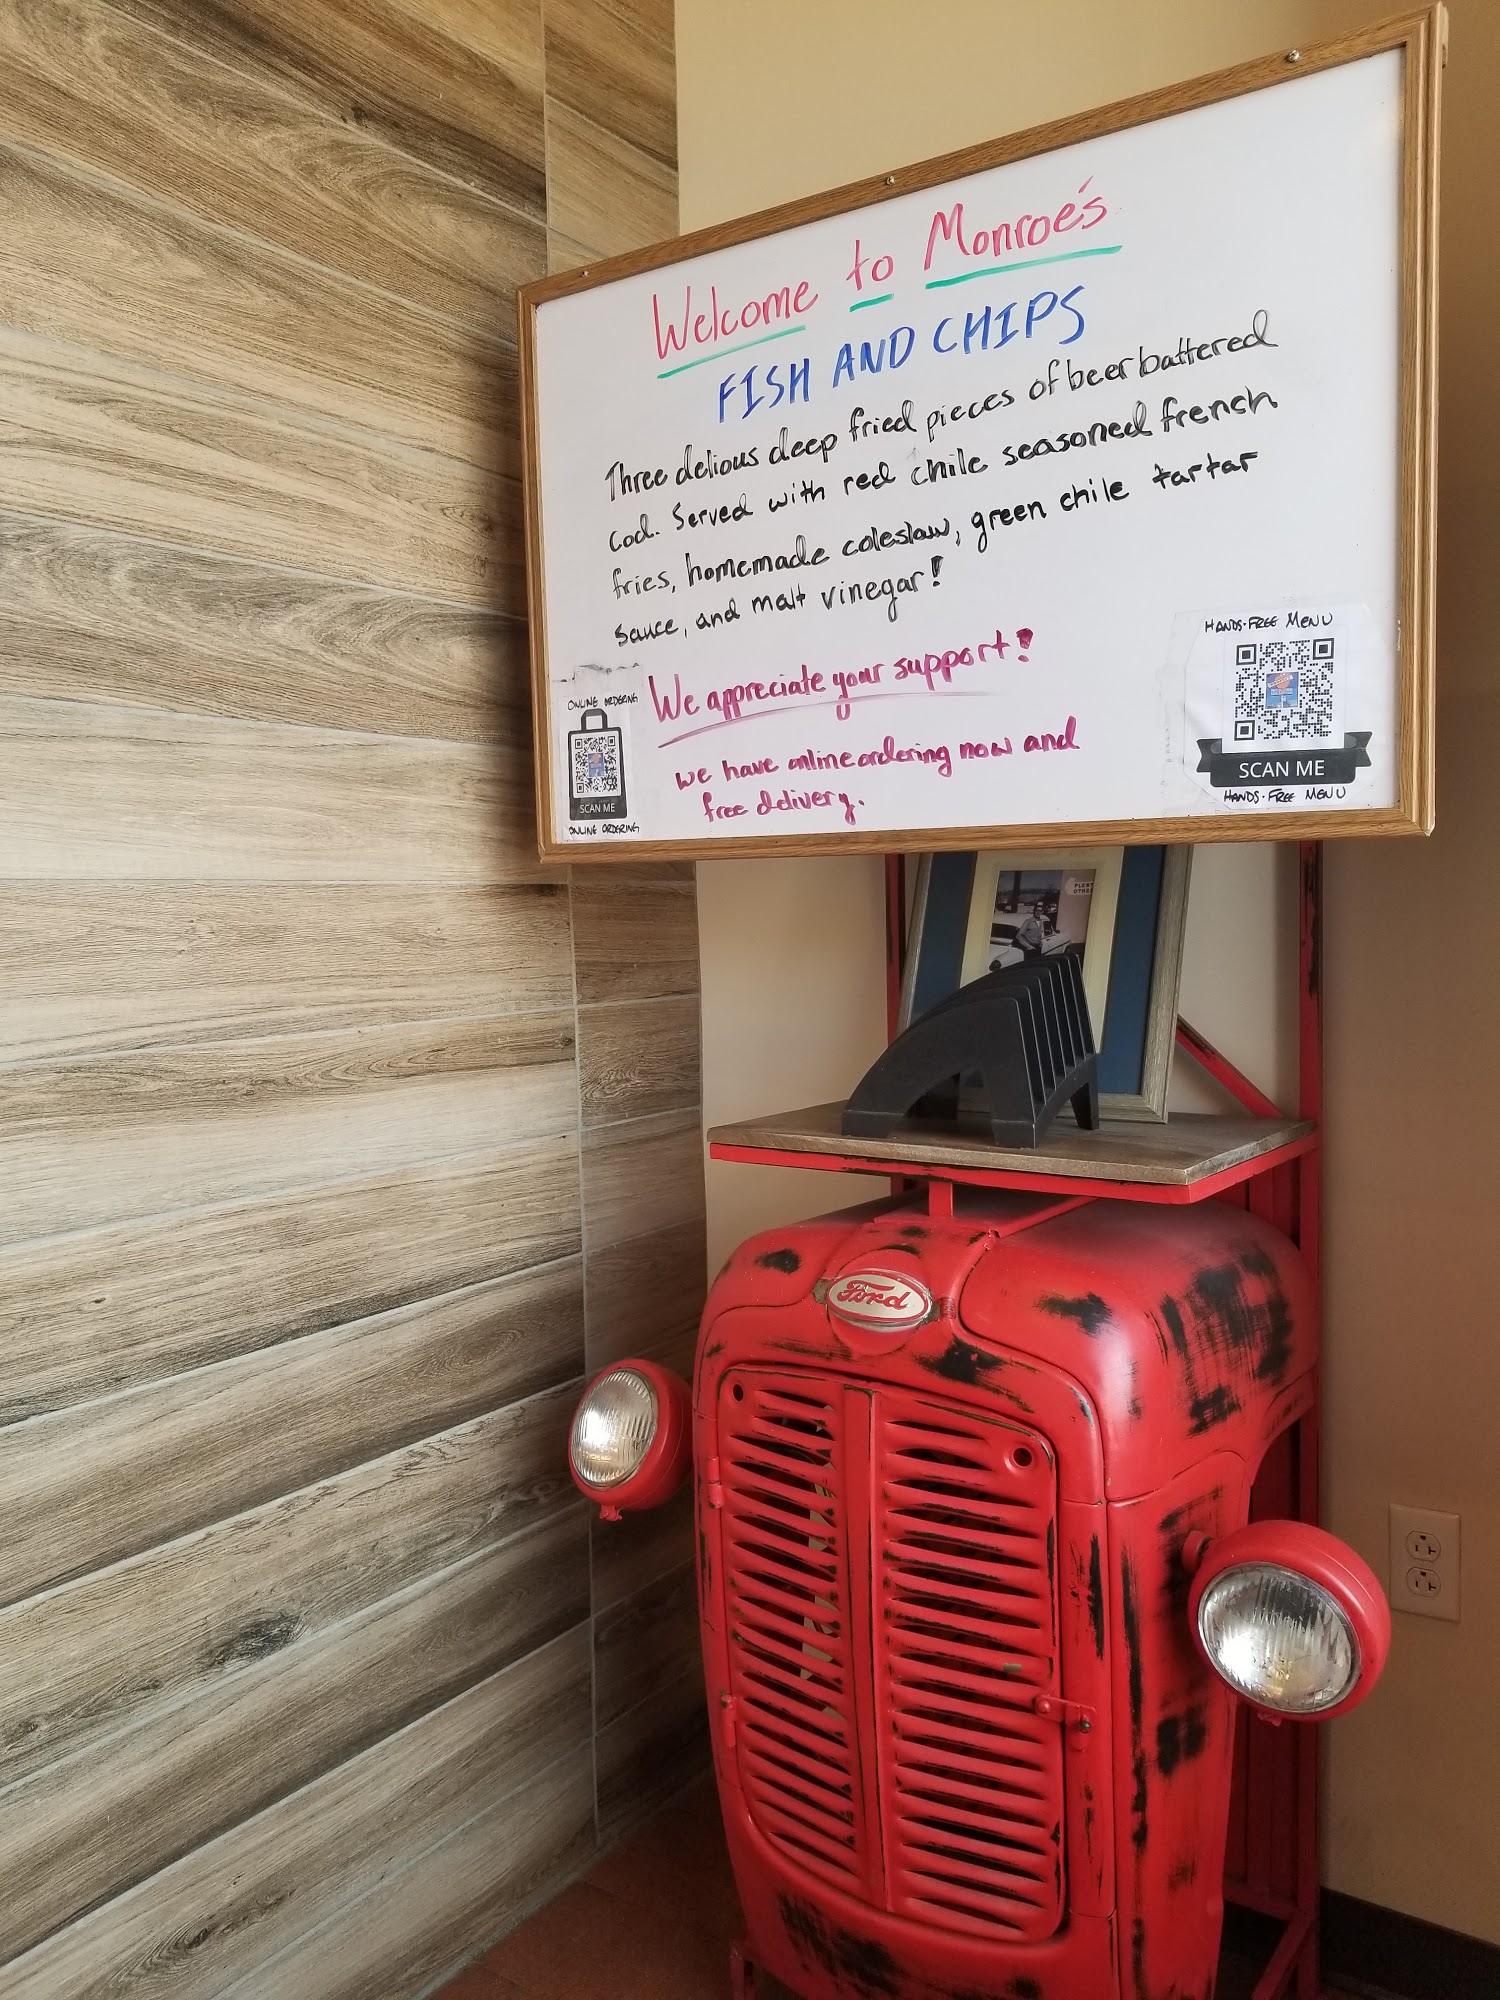 Welcome to Monroe's
FISH AND CHIPS
Three delious deep fried pieces of beer battered
cod. Served with red chile seasoned french
fries, homemade coleslaw, green chile tartar
sauce, and malt vinegar!
We appreciate your support!
we have online ordering now and
free delivery.
ONLINE ORDERING
SCAN ME
ONLINE ORDERING
HANDS-FREE MENU
SCAN ME
HANDS-FREE MENU
Ford